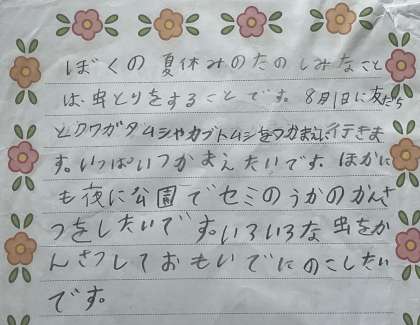 ぼくの夏休みのたのしみなこと
は、虫とりをすることです。8月1日に友だち
とクワガタムシやカブトムシをつかまえに行きま
す。いっぱいつかまえたいです。ほかに
も夜に公園でセミのうかのかんさ
つをしたいです。いろいろな虫をか
んさつしておもいでにのこしたい
です。